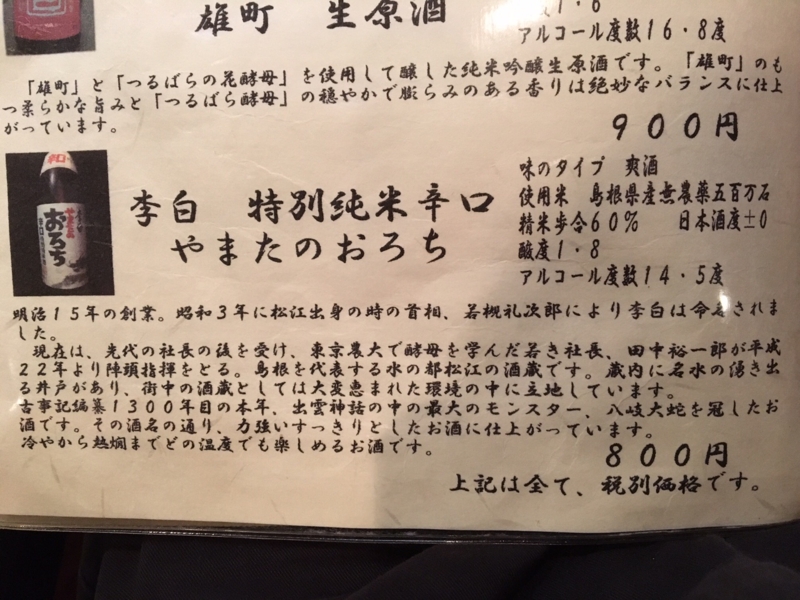 雄町　生原酒
度1・6
アルコール度数16・8度
「雄町」と「つるばらの花酵母」を使用して醸した純米吟醸生原酒です。「雄町」のも
つ柔らかな旨みと「つるばら酵母」の穏やかで膨らみのある香りは絶妙なバランスに仕上
がっています。
900円
李白　特別純米辛口
やまたのおろち
味のタイプ　爽酒
使用米　島根県産無農薬五百万石
精米歩合60%　日本酒度±0
酸度1・8
アルコール度数14・5度
おろち
明治15年の創業。昭和3年に松江出身の時の首相、若槻礼次郎により李白は命名されま
した。
現在は、先代の社長の後を受け、東京農大で酵母を学んだ若き社長、田中裕一郎が平成
22年より陣頭指揮をとる。島根を代表する水の都松江の酒蔵です。蔵内に名水の湧き出
る井戸があり、街中の酒蔵としては大変恵まれた環境の中に立地しています。
古事記編纂1300年目の本年、出雲神話の中の最大のモンスター、八岐大蛇を冠したお
酒です。その酒名の通り、力強いすっきりとしたお酒に仕上がっています。
冷やから熱燗までどの温度でも楽しめるお酒です。
800円
上記は全て、税別価格です。